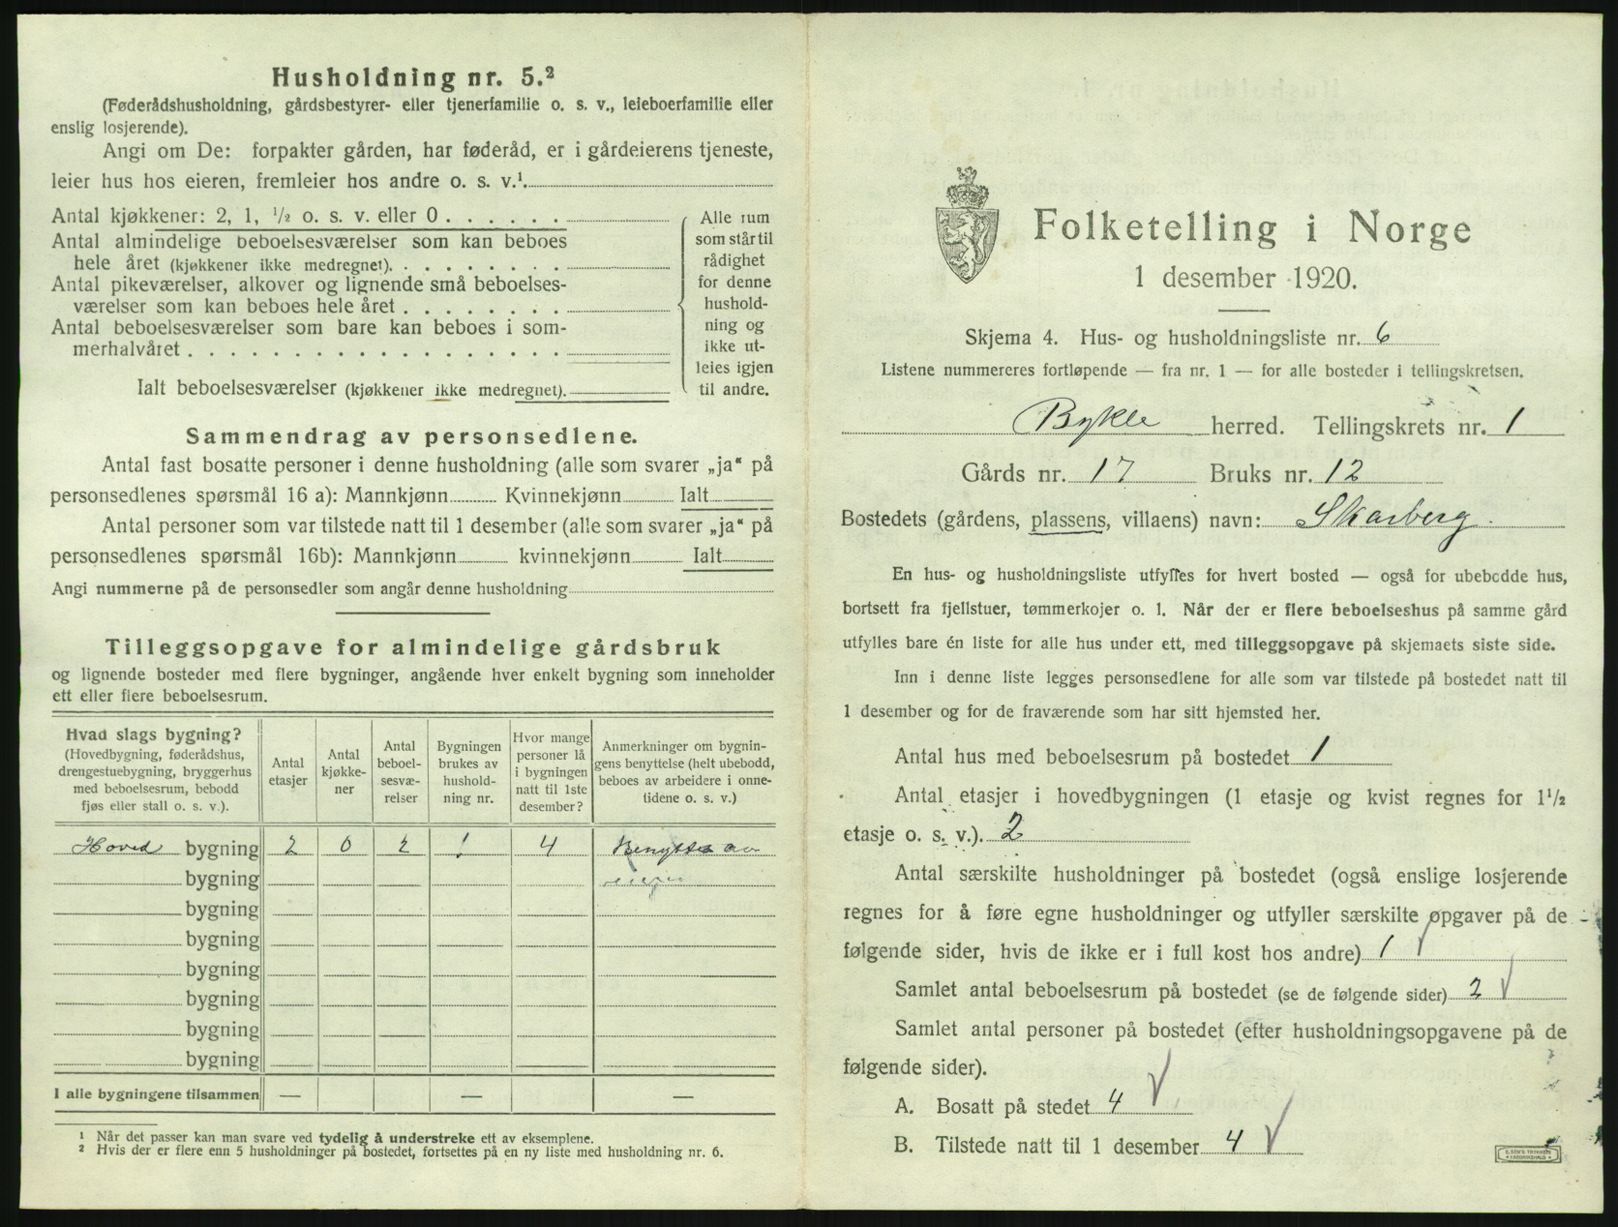 Husholdning nr. 5.²
(Føderådshusholdning, gårdsbestyrer- eller tjenerfamilie o. s. v., leieboerfamilie eller
enslig losjerende).
Angi om De: forpakter gården, har føderåd, er i gårdeierens tjeneste,
leier hus hos eieren, fremleier hos andre o. s. v.¹
Antal kjøkkener: 2, 1, ½ o. s. v. eller 0
Antal almindelige beboelsesværelser som kan beboes
hele året (kjøkkener ikke medregnet).
Antal pikeværelser, alkover og lignende små beboelses-
værelser som kan beboes hele året
Antal beboelsesværelser som bare kan beboes i som-
merhalvåret
Ialt beboelsesværelser (kjøkkener ikke medregnet).
Alle rum
som står til
rådighet
for denne
hushold-
ning og
ikke ut-
leies igjen
til andre.
Sammendrag av personsedlene.
Antal fast bosatte personer i denne husholdning (alle som svarer „ja“ på
personsedlenes spørsmål 16 a): Mannkjønn Kvinnekjønn Ialt
Antal personer som var tilstede natt til 1 desember (alle som svarer „ja“ på
personsedlenes spørsmål 16b): Mannkjønn kvinnekjønn Ialt
Angi nummerne på de personsedler som angår denne husholdning
Tilleggsopgave for almindelige gårdsbruk
og lignende bosteder med flere bygninger, angående hver enkelt bygning som inneholder
ett eller flere beboelsesrum.
Hvad slags bygning?
(Hovedbygning, føderådshus,
drengestuebygning, bryggerhus
med beboelsesrum, bebodd
fjøs eller stall o. s. v.).
Antal
etasjer
Antal
kjøkke-
ner
Antal
beboel-
sesvæ-
relser
Bygningen
brukes av
hushold-
ning nr.
Hvor mange
personer lå
i bygningen
natt til 1ste
desember?
Anmerkninger om bygnin-
gens benyttelse (helt ubebodd,
beboes av arbeidere i onne-
tidene o. s. v.)
Hoved bygning 2 0 2 1 4 Benyttes av
bygning eieren
bygning
bygning
bygning
bygning
bygning
bygning
I alle bygningene tilsammen — — —
¹ Når det passer kan man svare ved tydelig å understreke ett av eksemplene.
² Hvis der er flere enn 5 husholdninger på bostedet, fortsettes på en ny liste med husholdning nr. 6.
Folketelling i Norge
1 desember 1920.
Skjema 4. Hus- og husholdningsliste nr. 6
Listene nummereres fortløpende — fra nr. 1 — for alle bosteder i tellingskretsen.
Bykle herred. Tellingskrets nr. 1
Gårds nr. 17 Bruks nr. 12
Bostedets (gårdens, plassens, villaens) navn: Skarberg.
En hus- og husholdningsliste utfylles for hvert bosted — også for ubebodde hus,
bortsett fra fjellstuer, tømmerkojer o. l. Når der er flere beboelseshus på samme gård
utfylles bare én liste for alle hus under ett, med tilleggsopgave på skjemaets siste side.
Inn i denne liste legges personsedlene for alle som var tilstede på bostedet natt til
1 desember og for de fraværende som har sitt hjemsted her.
Antal hus med beboelsesrum på bostedet 1
Antal etasjer i hovedbygningen (1 etasje og kvist regnes for 1½
etasje o. s. v.). 2
Antal særskilte husholdninger på bostedet (også enslige losjerende
regnes for å føre egne husholdninger og utfyller særskilte opgaver på de
følgende sider, hvis de ikke er i full kost hos andre) 1 √
Samlet antal beboelsesrum på bostedet (se de følgende sider) 2 √
Samlet antal personer på bostedet (efter husholdningsopgavene på de
følgende sider).
A. Bosatt på stedet 4 √
B. Tilstede natt til 1 desember 4 √